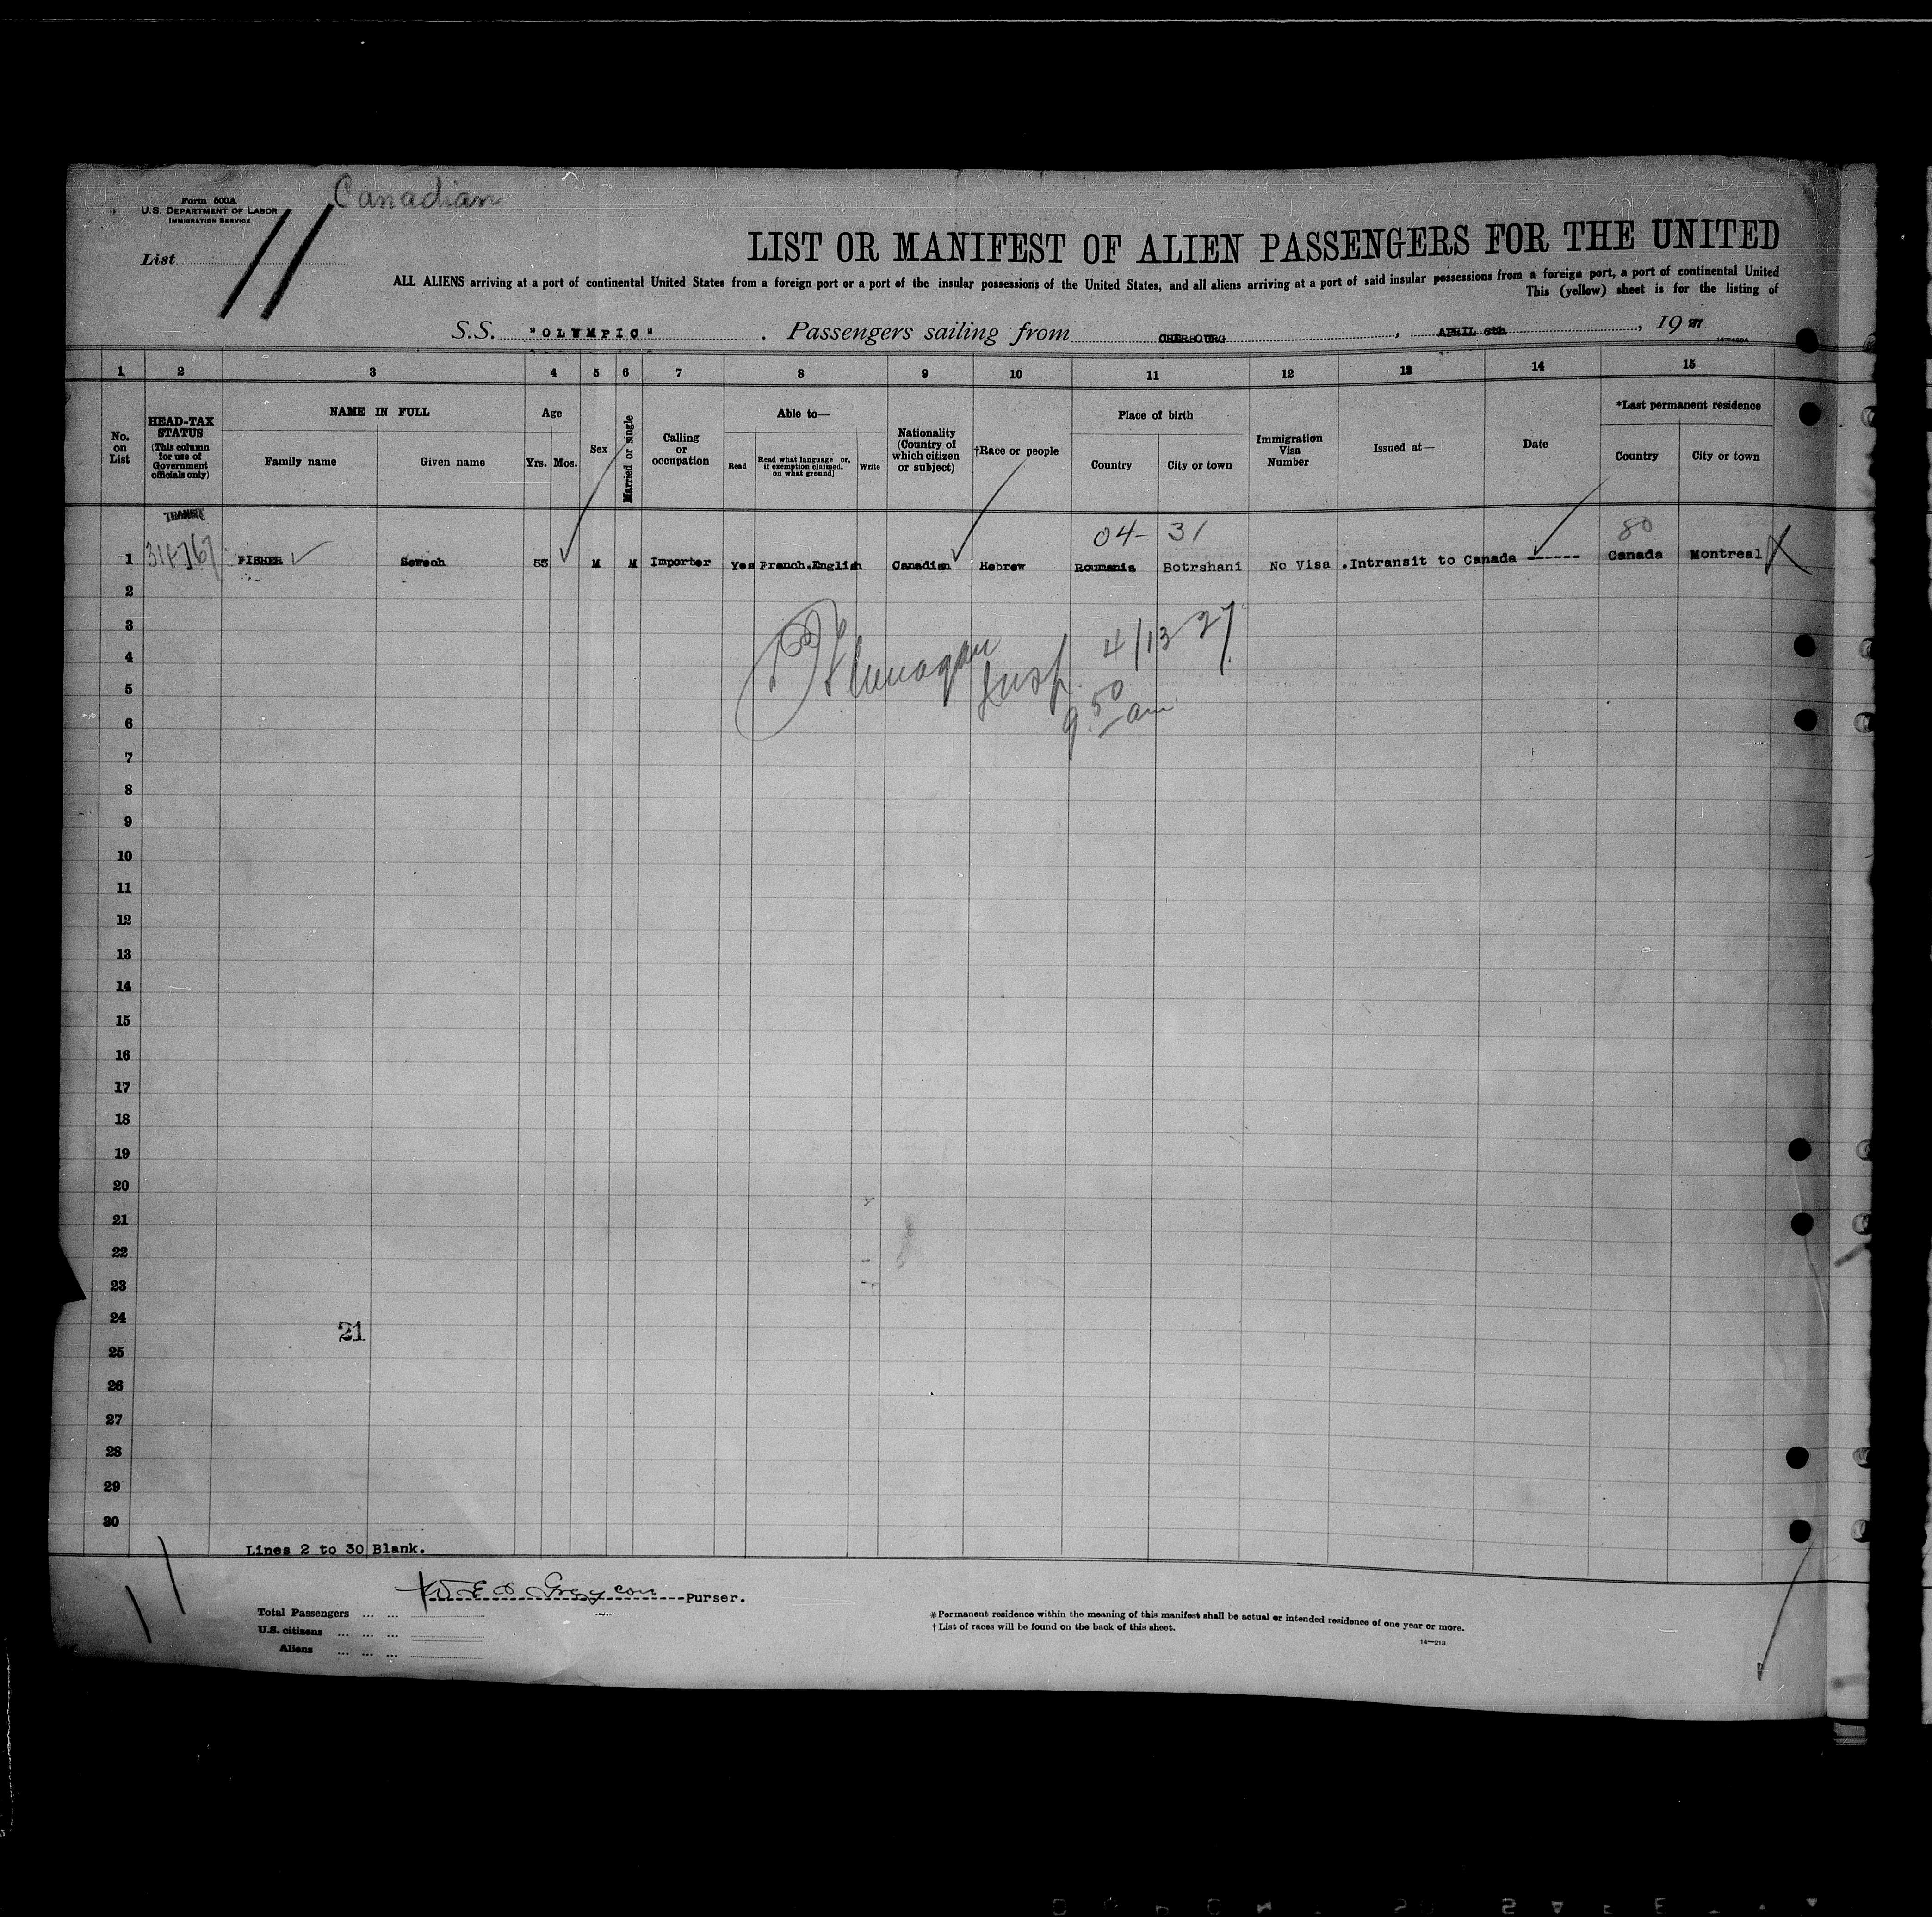 Canadian
Form 500A
U.S. DEPARTMENT OF LABOR
IMMIGRATION SERVICE
List 11
LIST OR MANIFEST OF ALIEN PASSENGERS FOR THE UNITED
ALL ALIENS arriving at a port of continental United States from a foreign port or a port of the insular possessions of the United States, and all aliens arriving at a port of said insular possessions from a foreign port, a port of continental United
This (yellow) sheet is for the listing of
S.S. "OLYMPIC". Passengers sailing from CHERBOURG, APRIL 6th, 1927
14—480A
1 2 3 4 5 6 7 8 9 10 11 12 13 14 15
No. on List
HEAD-TAX STATUS (This column for use of Government officials only)
NAME IN FULL
Family name Given name
Age
Yrs. Mos.
Sex
Married or single
Calling or occupation
Able to—
Read Read what language or, if exemption claimed, on what ground] Write
Nationality (Country of which citizen or subject)
†Race or people
Place of birth
Country City or town
Immigration Visa Number
Issued at—
Date
*Last permanent residence
Country City or town
TRANSIT
04- 31 80
1 FISHER 53 M M Importer Yes French.English Canadian Hebrew Roumania Botrshani No Visa .Intransit to Canada ------ Canada Montreal
2
3
4
5
6
Flanagan Insp. 4/13 27
9 50 am
7
8
9
10
11
12
13
14
15
16
17
18
19
20
21
22
23
24
21
25
26
27
28
29
30
Lines 2 to 30 Blank.
Purser.
Total Passengers ... ...
U.S. citizens ... ... ...
Aliens ... ... ...
*Permanent residence within the meaning of this manifest shall be actual or intended residence of one year or more.
†List of races will be found on the back of this sheet.
14—213